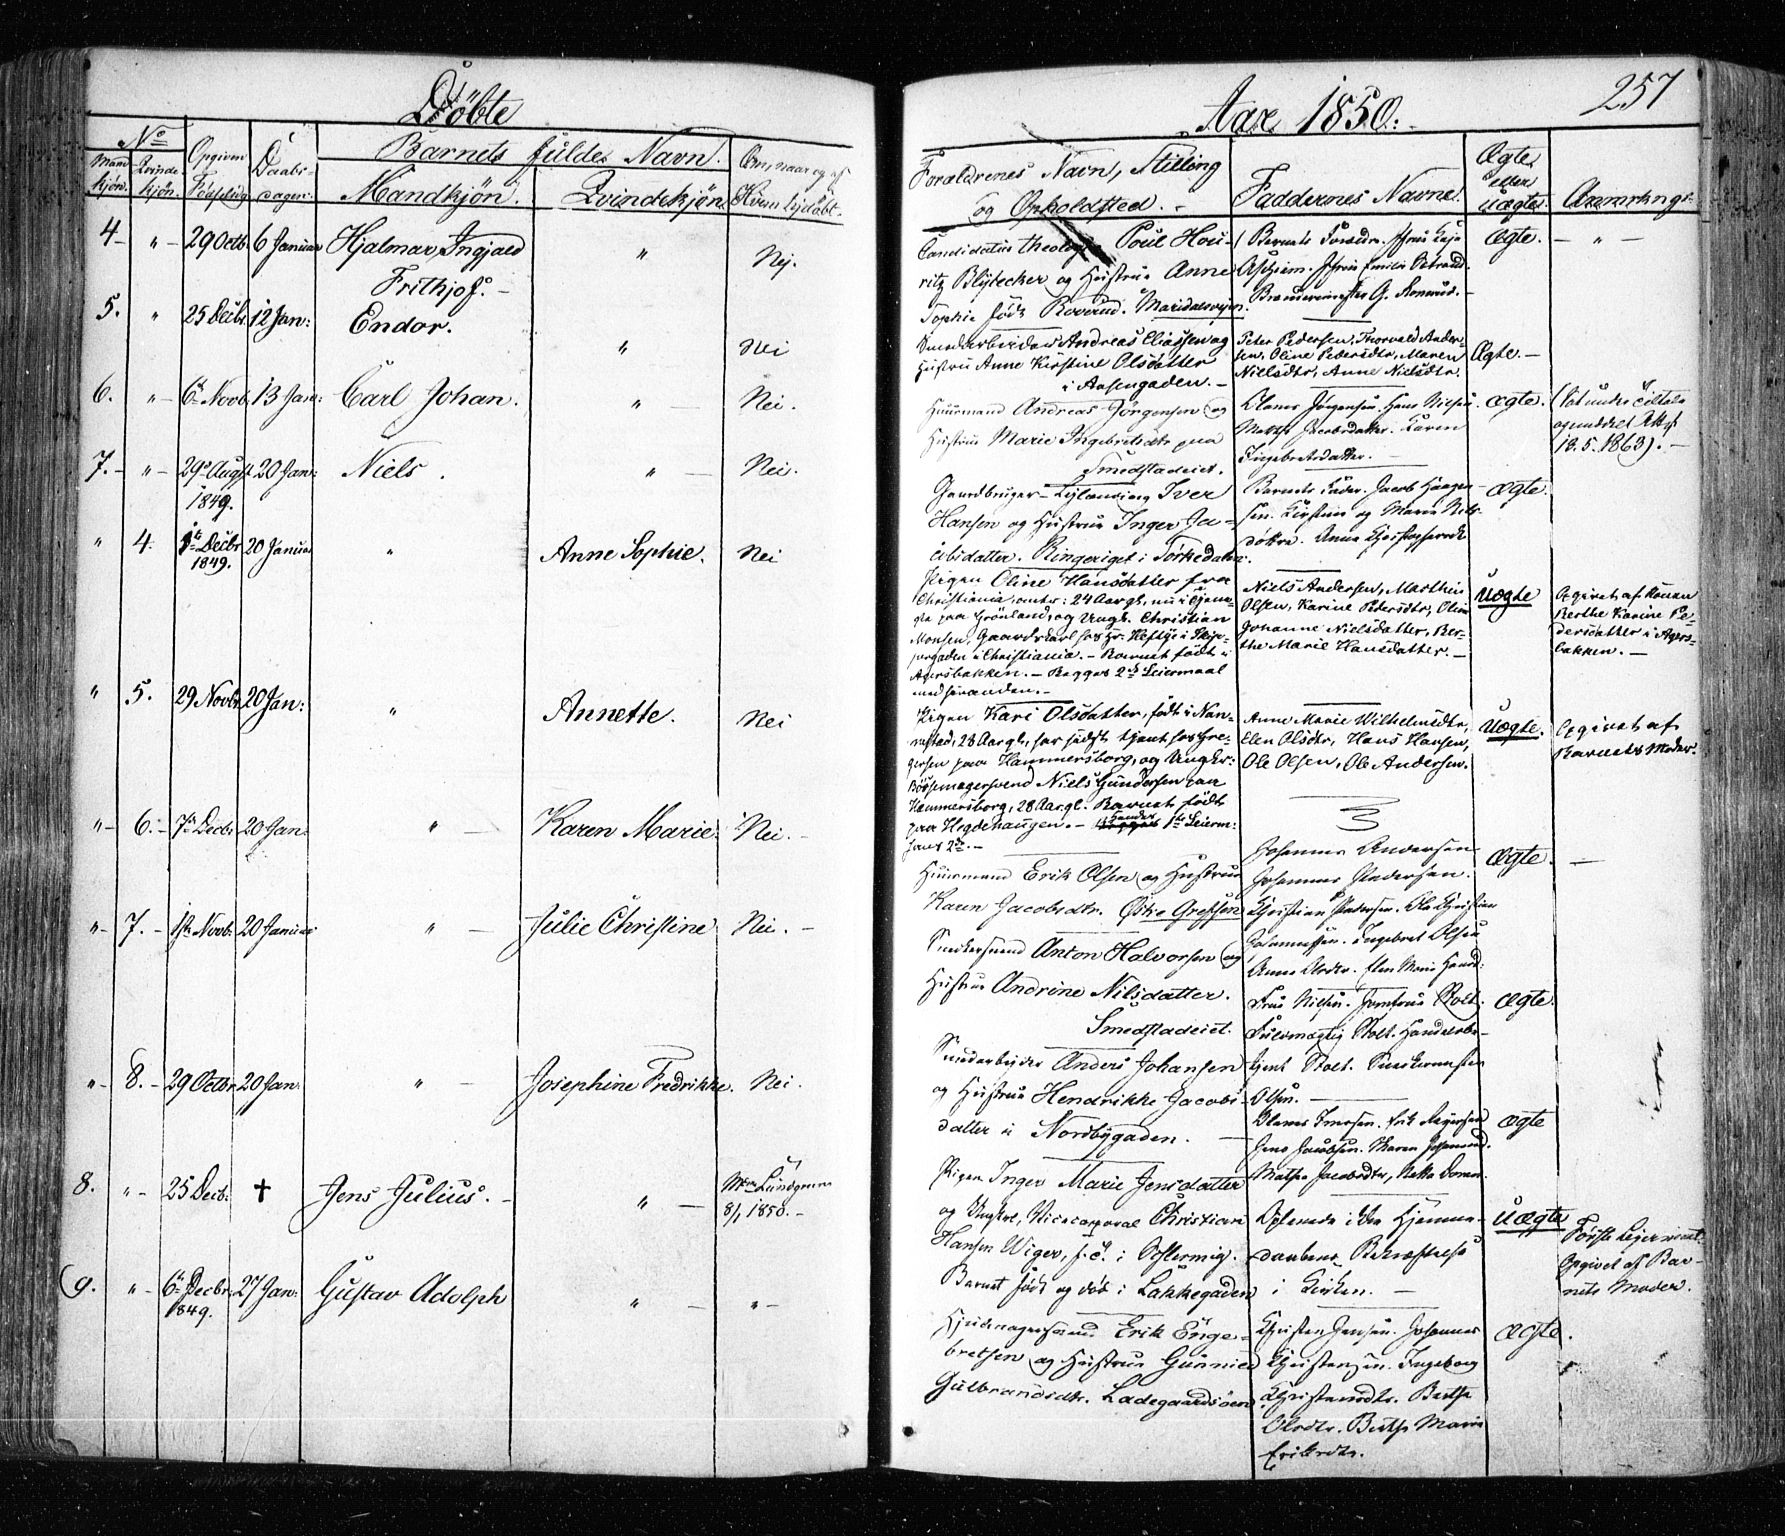 Döbte
Aar 1850.
257
No
Mand
kjön.
Qvinde
kjön.
Opgiven
Födselsdag
Daabs-
dagen
Barnets fulde Navn.
Mandkjön.
Qvindekjön
Om, naar og af
Hvem hjdöbt.
Forældrenes Navn, Stilling
og Opholdsted.
Faddernes Navne.
Ægte
eller
uægte
Anmærkngr
4 - " - 29 Octb. 6 Januar Hjalmar, Ingjald " Nej.
Frithjof. -
Candidatus theologiæ Poul Hou-
ritz Blytecker og Hustrue Anne
Sophie födt Roverud. Maridalsvejen.
Barnets Forældr.
Aspheim.
Brændevinsb G.
Ægte. - " -
5. " 25 Decbr. 12 Jan: Endor. " Nei
Smedarbeider Andreas Eliassen og
Hustru Anne Kirstine Olsdatter
i Aasengaden. -
Peter Pedersen, Thorvald Ander-
sen, Oline Pedersdtr, Maren
Nielsdtr, Anne Nielsdtr.
Ægte. -
6. " - 6te Novb. 13 Jan: Carl Johan. " - Nei.
Huusmand Andreas Jörgensen og
Hustrue Marie Ingebretsdtr paa
Smedstadeiet.
Jörgensen. Hans Nielsen
Mathe Jacobsdatter. Karen
Ingebretsdatter. -
Ægte.
18.5.1863). -
7. - " - 29de Augst 20 Jan: Niels. " - Nei.
1849.
Gaardbruger - Iver
Hansen og Hustrue Inger Ja-
cobsdatter. Ringeriget i Sörkedalen.
Barnets Fader. Jacob Haagen-
sen. Kirstine og Maria Nils-
döttre. Anne
Ægte.
" 4. 1ste Decbr 20 Januar " Anne Sophie. Nei
1849.
Pigen Oline Hansdatter fra
Christiania, omtr: 24 Aar gl, nu i tjene-
ste paa Grönland, og Ungk. Christian
Monsen, Gaardskarl hos Hr. Heftye i Skip-
pergaden i Christiania. - Barnet födt i
Agersbakken. - Begges 2det Leiermaal
med hinanden. -
Niels Andersen, Marthin
Olsen, Karine Pedersdtr, Oline
Johanne Nielsdatter, Ber-
the Marie Hansdatter. -
Uægte
Opgivet af Konen
Berthe Karine Pe-
dersdatter i Agers-
bakken. -
" 5. 29 Novbr 20 Jan: " Annette. Nei
Pigen Kari Olsdatter, födt i Nan-
nestad, 28 Aar gl, har sidst tjent hos Gre-
gersen paa Hammersborg, og Ungkr:
Bössemagersvend Niels Gundersen paa
Hammersborg, 28 Aar gl. Barnet födt
paa Hegdehaugen. - Hendes 1ste Leierm:
hans 2det. -
Anne Marie Wilhelmsdtr,
Elen Olsdtr, Hans Hansen,
Ole Olsen, Ole Andersen.
Uægte.
Opgivet af
Barnets Moder.
" - 6. - 7de Decbr 20 Jan: " - Karen Marie. Nei. -
Huusmand Erik Olsen og Hustrue
Karen Jacobsdtr. Östre Grefsen
Johannes Andersen
Johannes Pedersen.
Christian Pedersen. Ole Christian
Ægte. -
" - 7. - 1ste Novb. 20 Januar " - Julie Christine Nei. -
Snekkersvend Anton Halvorsen og
Hustrue Andrine Nilsdatter.
Smedstadeiet.
Johannessen. Ingebret Olsen
Anne Olsdtr. Elen Marie Hansd:
Fru Nielsen. Jomfrue Stolt.
Fuldmægtig Stolt. Handelsbe-
Ægte.
" - 8. - 29 Octbr 20 Jan. " - Josephine Fredrikke. Nei.
Smedarbeider Anders Johansen
og Hustrue Hendrikke Jacobs-
datter i Nordbygaden. -
tjent Stolt. Snekkermester
Olsen.
Jens Jacobsen. Maren
Mathea Jacobsdtr,
Ægte
8. " - 25 Decb: † Jens Julius. - " - Mdm Lundgreen
8/1 1850. -
Pigen Inger Marie Jensdatter
og Ungkrl, Vicecorporal Christian
Hansen Wiger, f. C. i
Barnet födt og död i Lakkegaden
Oplæsede i den Hjemme-
daabens Bekræftelse
i Kirken. -
Uægte
Förste Lejermaal.
Opgivet af Bar-
nets Moder.
(9. " - 6te Decbr. 27 Jan: Gustav Adolph " - " -
1849.
Hjulmagersvend Erik Enge-
bretsen og Hustrue Gunnild
Gulbrandsdtr. Ladegaardsöen
Christen Jensen. Johannes
Christensen. Ingeborg
Christensdtr. Berthe
Olsdtr. Berthe Marie
Eriksdtr.
Ægte.